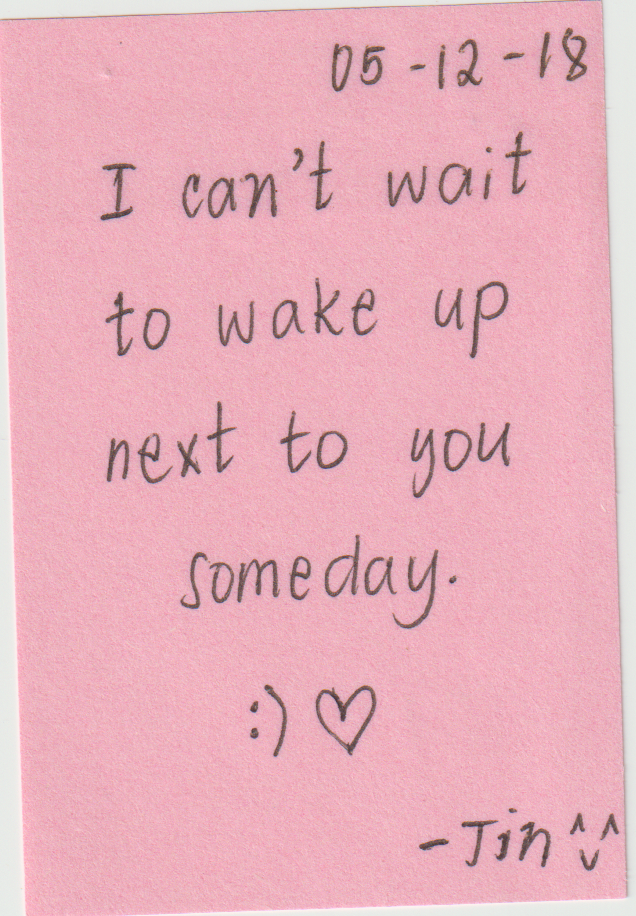 05-12-18
I can't wait
to wake up
next to you
someday.
:) ♡
-Jin ^ᵥ^